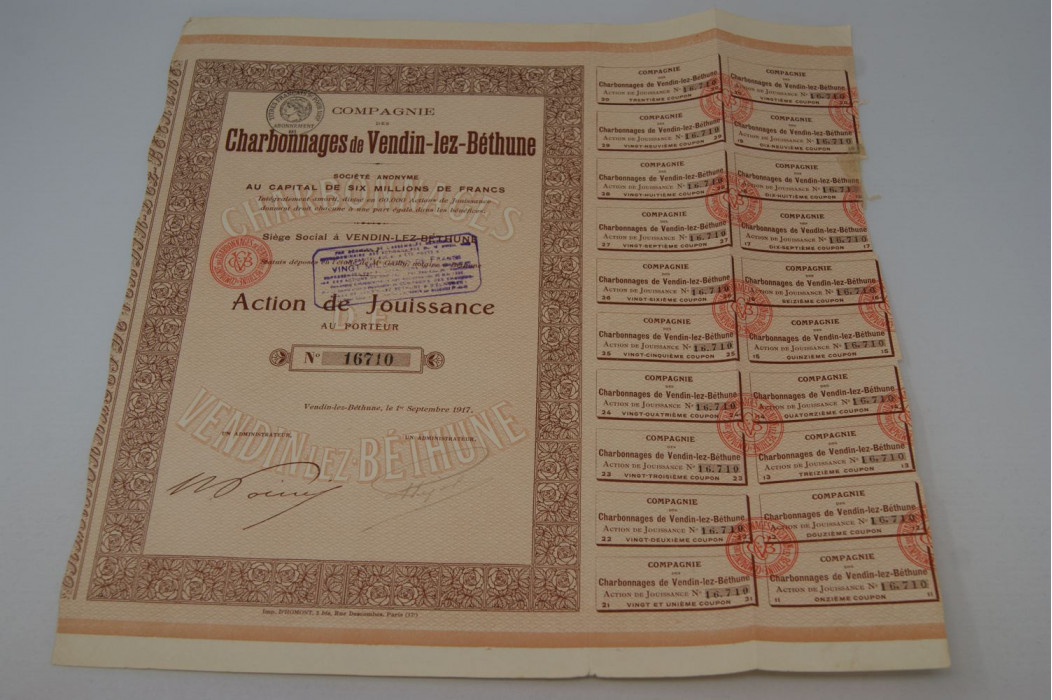 COMPAGNIE
DES
Charbonnages de Vendin-lez-Béthune
SOCIÉTÉ ANONYME
AU CAPITAL DE SIX MILLIONS DE FRANCS
Intégralement amorti, divisé en 60.000 Actions de Jouissance
donnant droit chacune à une part égale dans les bénéfices
CHARBONNAGES
Siège Social à VENDIN-LEZ-BÉTHUNE
Statuts déposés
VINGT
DE
Action de Jouissance
AU PORTEUR
No 16710
Vendin-lez-Béthune, le 1er Septembre 1917.
UN ADMINISTRATEUR,
UN ADMINISTRATEUR,
VENDIN-LEZ-BÉTHUNE
Imp. D'HOMONT, 3 bis, Rue Descombes, Paris (17e)
COMPAGNIE
DES
Charbonnages de Vendin-lez-Béthune
ACTION DE JOUISSANCE No 16.710
30 TRENTIÈME COUPON
COMPAGNIE
DES
Charbonnages de Vendin-lez-Béthune
ACTION DE JOUISSANCE No 16.710
VINGTIÈME COUPON
COMPAGNIE
DES
Charbonnages de Vendin-lez-Béthune
ACTION DE JOUISSANCE No 16.710
29 VINGT-NEUVIÈME COUPON 29
COMPAGNIE
DES
Charbonnages de Vendin-lez-Béthune
ACTION DE JOUISSANCE No 16.710
19 DIX-NEUVIÈME COUPON
COMPAGNIE
DES
Charbonnages de Vendin-lez-Béthune
ACTION DE JOUISSANCE No 16.710
28 VINGT-HUITIÈME COUPON
COMPAGNIE
DES
Charbonnages de Vendin-lez-Béthune
ACTION DE JOUISSANCE No 16.710
DIX-HUITIÈME COUPON
COMPAGNIE
DES
Charbonnages de Vendin-lez-Béthune
ACTION DE JOUISSANCE No 16.710
27 VINGT-SEPTIÈME COUPON 27
COMPAGNIE
DES
Charbonnages de Vendin-lez-Béthune
ACTION DE JOUISSANCE No 16.710
17 DIX-SEPTIÈME COUPON 17
COMPAGNIE
DES
Charbonnages de Vendin-lez-Béthune
ACTION DE JOUISSANCE No 16.710
26 VINGT-SIXIÈME COUPON 26
COMPAGNIE
DES
Charbonnages de Vendin-lez-Béthune
ACTION DE JOUISSANCE No 16.710
SEIZIÈME COUPON 16
COMPAGNIE
DES
Charbonnages de Vendin-lez-Béthune
ACTION DE JOUISSANCE No 16.710
25 VINGT-CINQUIÈME COUPON 25
COMPAGNIE
DES
Charbonnages de Vendin-lez-Béthune
ACTION DE JOUISSANCE No 16.710
15 QUINZIÈME COUPON 15
COMPAGNIE
DES
Charbonnages de Vendin-lez-Béthune
ACTION DE JOUISSANCE No 16.710
24 VINGT-QUATRIÈME COUPON 24
COMPAGNIE
DES
Charbonnages de Vendin-lez-Béthune
ACTION DE JOUISSANCE No 16.710
QUATORZIÈME COUPON
COMPAGNIE
DES
Charbonnages de Vendin-lez-Béthune
ACTION DE JOUISSANCE No 16.710
23 VINGT-TROISIÈME COUPON 23
COMPAGNIE
DES
Charbonnages de Vendin-lez-Béthune
ACTION DE JOUISSANCE No 16.710
13 TREIZIÈME COUPON 13
COMPAGNIE
DES
Charbonnages de Vendin-lez-Béthune
ACTION DE JOUISSANCE No 16.710
22 VINGT-DEUXIÈME COUPON 22
COMPAGNIE
DES
Charbonnages de Vendin-lez-Béthune
ACTION DE JOUISSANCE No 16.710
DOUZIÈME COUPON
COMPAGNIE
DES
Charbonnages de Vendin-lez-Béthune
ACTION DE JOUISSANCE No 16.710
21 VINGT ET UNIÈME COUPON 21
COMPAGNIE
DES
Charbonnages de Vendin-lez-Béthune
ACTION DE JOUISSANCE No 16.710
11 ONZIÈME COUPON 11